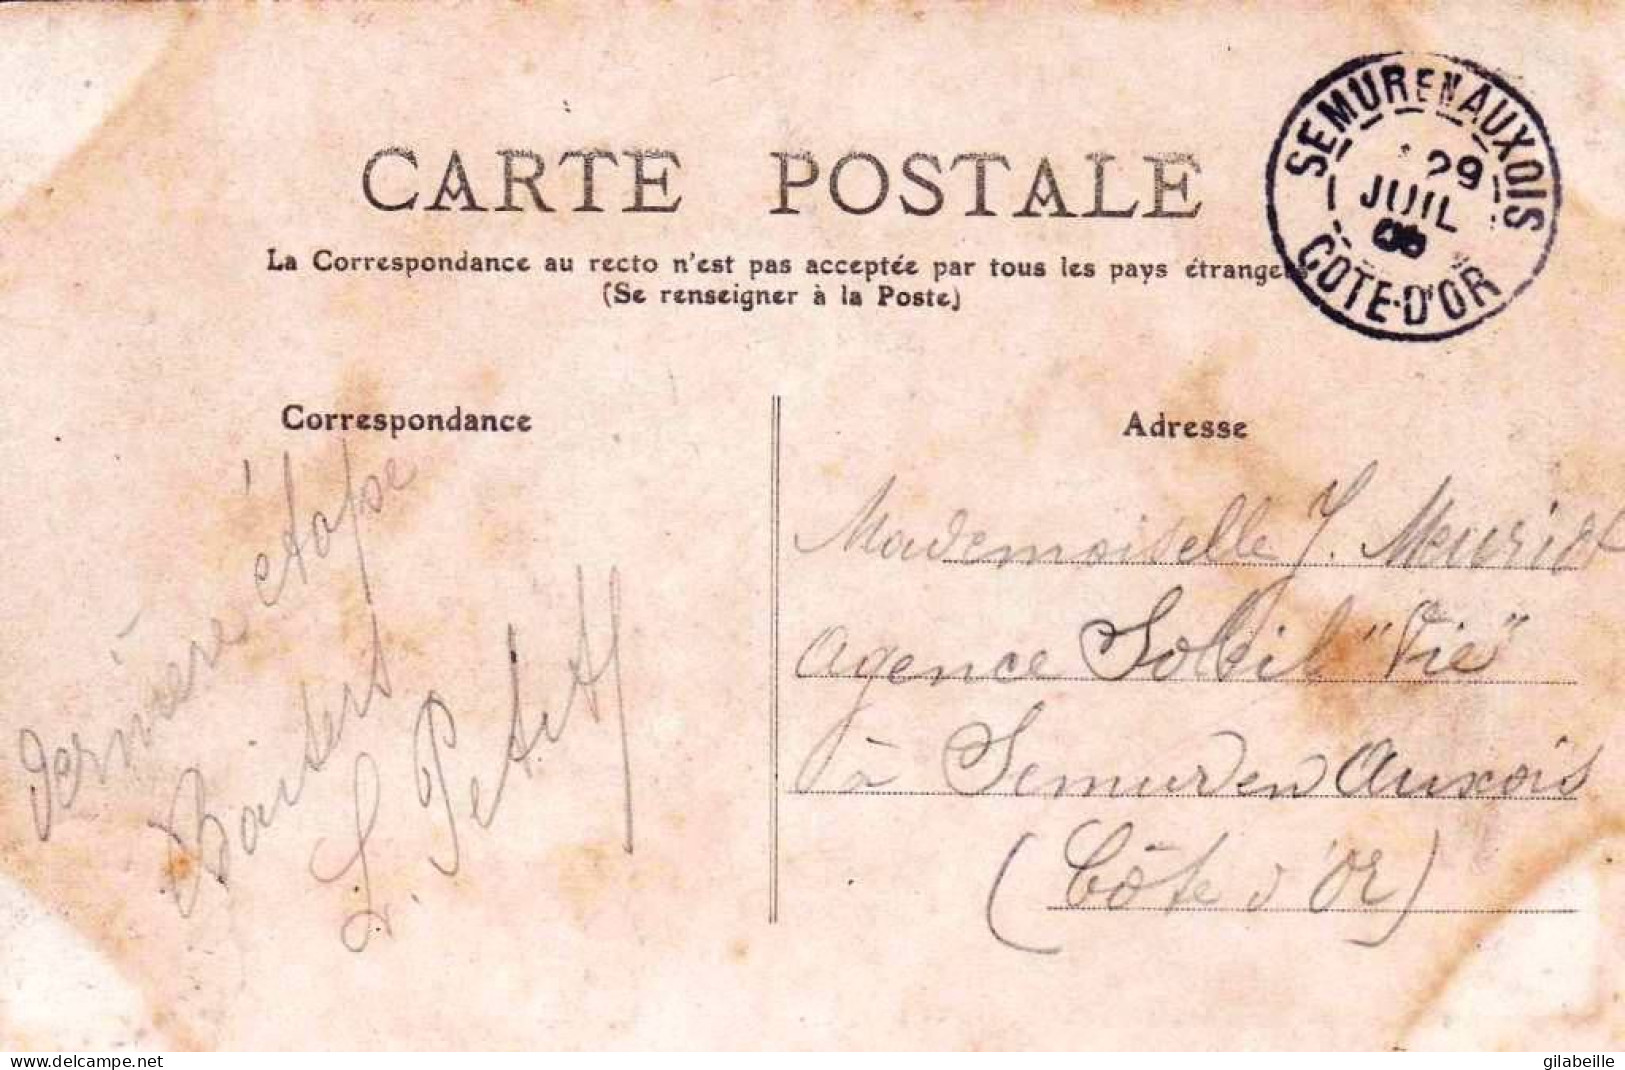 CARTE POSTALE
La Correspondance au recto n'est pas acceptée par tous les pays étrangers
(Se renseigner à la Poste)
SEMUR EN AUXOIS
29
JUIL
COTE-D'OR
Correspondance
dernière étape
L. Petit
Adresse
Mademoiselle J. Meuriot
agence Soleil "Vie"
à Semur en Auxois
(Côte d'Or)
www.delcampe.net
gilabeille